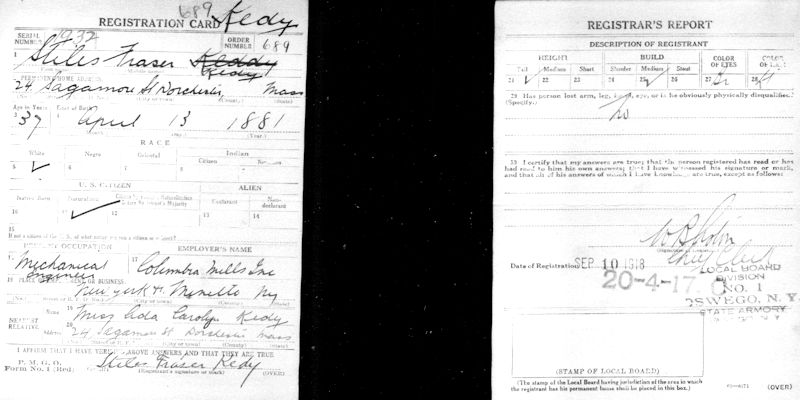 689 Kedy
REGISTRATION CARD
SERIAL NUMBER 1932
ORDER NUMBER 689
Stiles Fraser Keddy
Kedy
PERMANENT HOME ADDRESS
24 Sagamore St Dorchester, Mass
Age in Years Date of Birth
37 April 13 1881
RACE
White Negro Oriental Indian
Citizen
U. S. CITIZEN ALIEN
Native Born Naturalized Declarant Non-declarant
10 12 13 14
15
If not a citizen of the U. S., of what nation are you a citizen or subject?
PRESENT OCCUPATION EMPLOYER'S NAME
16 Mechanical Engineer 17 Columbia Mills Inc
18 PLACE OF EMPLOYMENT OR BUSINESS
New York St Minetto Ny
NEAREST RELATIVE
Name 19 Miss Ada Carolyn Kedy
Address 20 24 Sagamore St Dorchester Mass
I AFFIRM THAT I HAVE VERIFIED ABOVE ANSWERS AND THAT THEY ARE TRUE
P. M. G. O.
Form No. 1 (Red) Stiles Fraser Kedy
(Registrant's signature or mark) (OVER)
REGISTRAR'S REPORT
DESCRIPTION OF REGISTRANT
HEIGHT BUILD COLOR OF EYES COLOR OF
Tall Medium Short Slender Medium Stout
21 22 23 24 25 26 27 28
29 Has person lost arm, leg, hand, eye, or is he obviously physically disqualified?
(Specify.) no
30 I certify that my answers are true; that the person registered has read or has
had read to him his own answers; that I have witnessed his signature or mark,
and that all of his answers of which I have knowledge are true, except as follows:
Chief Clerk
Date of Registration SEP 10 1918
20-4-17. C
LOCAL BOARD
DIVISION
NO. 1
OSWEGO, N.Y.
STATE ARMORY
(STAMP OF LOCAL BOARD)
(The stamp of the Local Board having jurisdiction of the area in which
the registrant has his permanent home shall be placed in this box.)
(OVER)